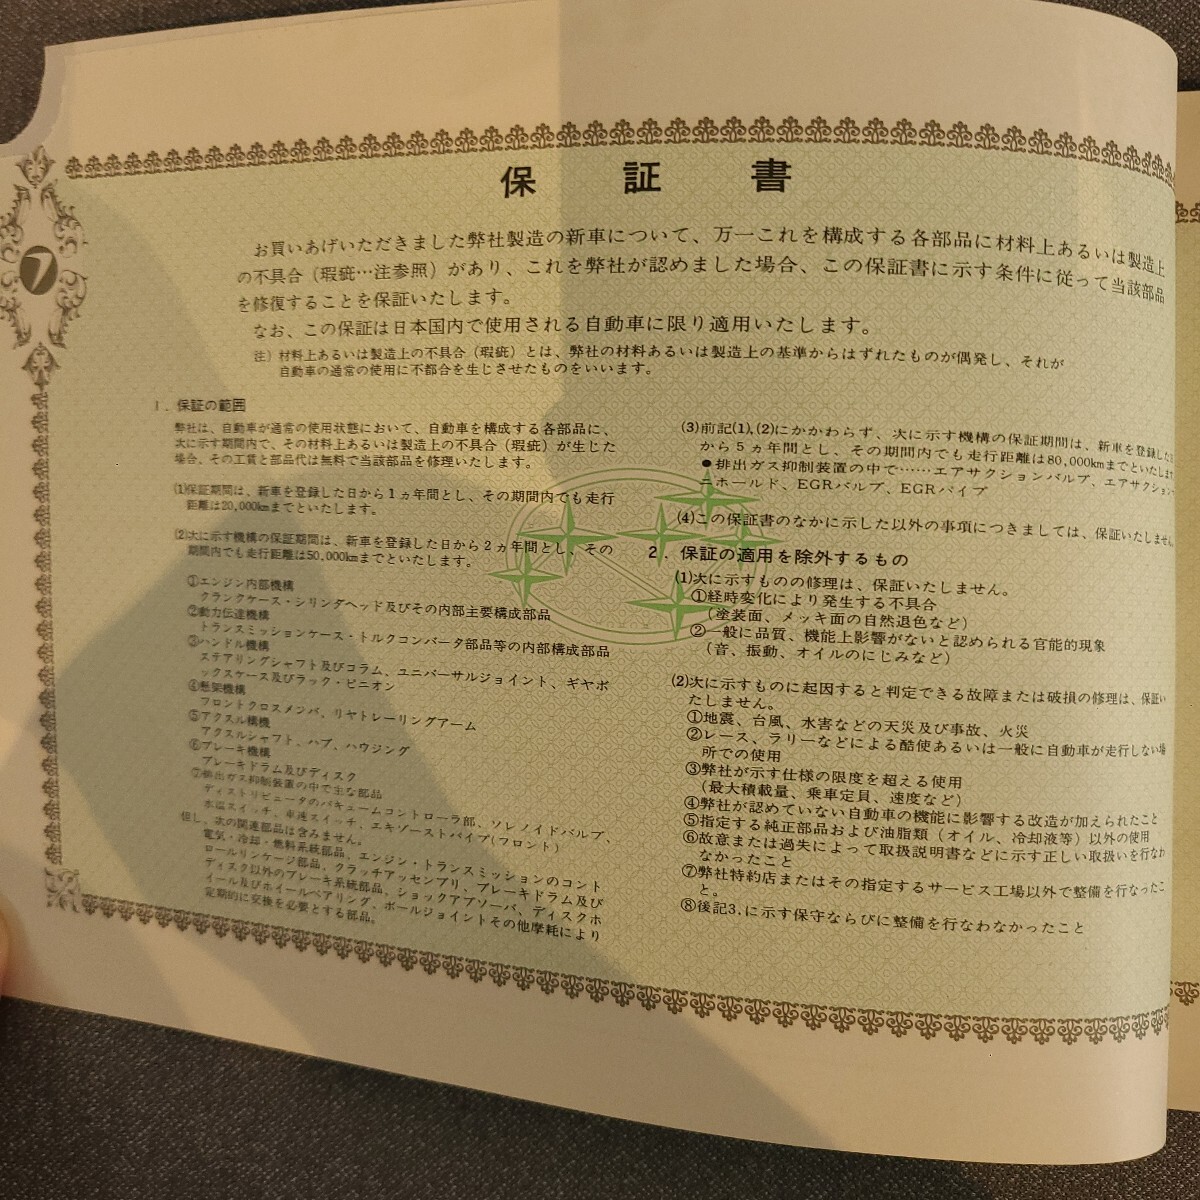 保証書
7
お買いあげいただきました弊社製造の新車について、万一これを構成する各部品に材料上あるいは製造上
の不具合（瑕疵…注参照）があり、これを弊社が認めました場合、この保証書に示す条件に従って当該部品
を修復することを保証いたします。
なお、この保証は日本国内で使用される自動車に限り適用いたします。
注）材料上あるいは製造上の不具合（瑕疵）とは、弊社の材料あるいは製造上の基準からはずれたものが偶発し、それが
自動車の通常の使用に不都合を生じさせたものをいいます。
1．保証の範囲
弊社は、自動車が通常の使用状態において、自動車を構成する各部品に、
次に示す期間内で、その材料上あるいは製造上の不具合（瑕疵）が生じた
場合、その工賃と部品代は無料で当該部品を修理いたします。
(1)保証期間は、新車を登録した日から1ヵ年間とし、その期間内でも走行
距離は20,000kmまでといたします。
(2)次に示す機構の保証期間は、新車を登録した日から2ヵ年間とし、その
期間内でも走行距離は50,000kmまでといたします。
①エンジン内部機構
クランクケース・シリンダヘッド及びその内部主要構成部品
②動力伝達機構
トランスミッションケース・トルクコンバータ部品等の内部構成部品
③ハンドル機構
ステアリングシャフト及びコラム、ユニバーサルジョイント、ギヤボ
ックスケース及びラック・ピニオン
④懸架機構
フロントクロスメンバ、リヤトレーリングアーム
⑤アクスル機構
アクスルシャフト、ハブ、ハウジング
⑥ブレーキ機構
ブレーキドラム及びディスク
⑦排出ガス抑制装置の中で主な部品
ディストリビュータのバキュームコントローラ部、ソレノイドバルブ、
水温スイッチ、車速スイッチ、エキゾーストパイプ(フロント)
但し、次の関連部品は含みません。
電気・冷却・燃料系統部品、エンジン・トランスミッションのコント
ロールリンケージ部品、クラッチアッセンブリ、ブレーキドラム及び
ディスク以外のブレーキ系統部品、ショックアブソーバ、ディスクホ
イール及びホイールベアリング、ボールジョイントその他摩耗により
定期的に交換を必要とする部品。
(3)前記(1)、(2)にかかわらず、次に示す機構の保証期間は、新車を登録した
から5ヵ年間とし、その期間内でも走行距離は80,000kmまでといたします
●排出ガス抑制装置の中で……エアサクションバルブ、エアサクション
ニホールド、EGRバルブ、EGRパイプ
(4)この保証書のなかに示した以外の事項につきましては、保証いたしません。
2．保証の適用を除外するもの
(1)次に示すものの修理は、保証いたしません。
①経時変化により発生する不具合
（塗装面、メッキ面の自然退色など）
②一般に品質、機能上影響がないと認められる官能的現象
（音、振動、オイルのにじみなど）
(2)次に示すものに起因すると判定できる故障または破損の修理は、保証い
たしません。
①地震、台風、水害などの天災及び事故、火災
②レース、ラリーなどによる酷使あるいは一般に自動車が走行しない場
所での使用
③弊社が示す仕様の限度を超える使用
（最大積載量、乗車定員、速度など）
④弊社が認めていない自動車の機能に影響する改造が加えられたこと
⑤指定する純正部品および油脂類（オイル、冷却液等）以外の使用
⑥故意または過失によって取扱説明書などに示す正しい取扱いを行なわ
なかったこと
⑦弊社特約店またはその指定するサービス工場以外で整備を行なったこ
と。
⑧後記3.に示す保守ならびに整備を行なわなかったこと